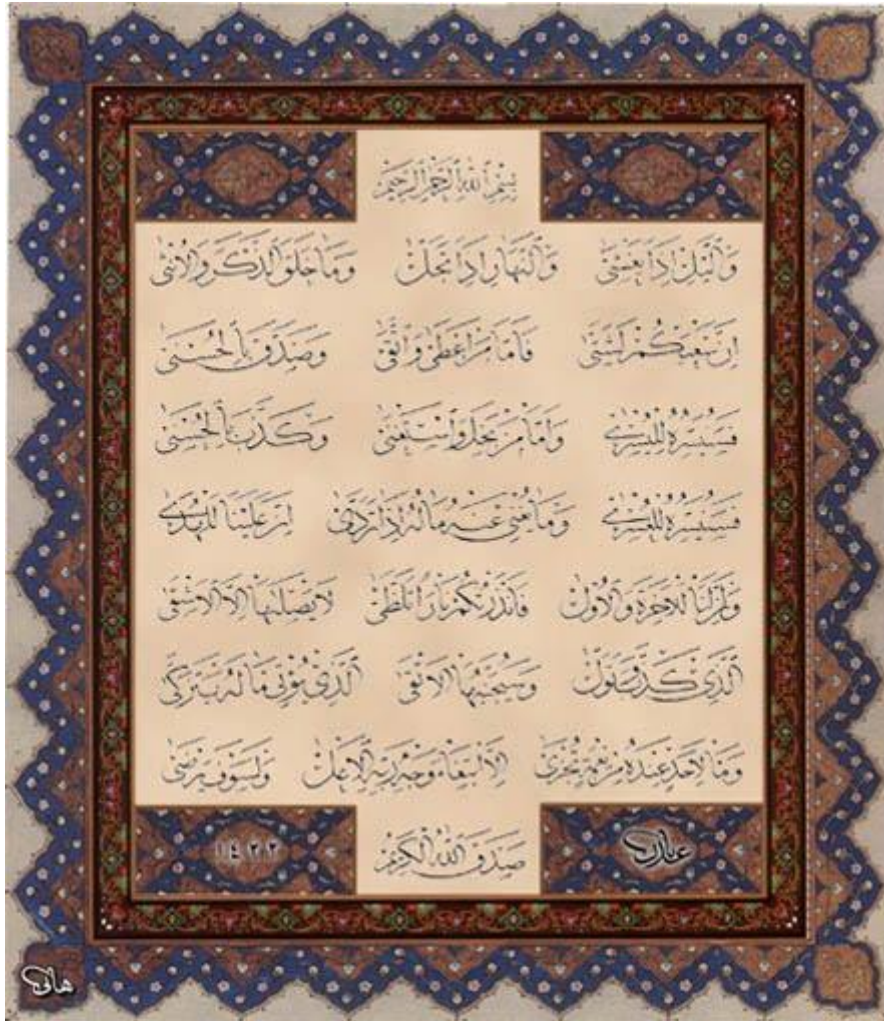 بِسْمِ ٱللّٰهِ ٱلرَّحْمٰنِ ٱلرَّحِيمِ
وَٱلَّيْلِ اِذَا يَغْشٰى وَٱلنَّهَارِ اِذَا تَجَلّٰى وَمَا خَلَقَ ٱلذَّكَرَ وَالْاُنْثٰى
اِنَّ سَعْيَكُمْ لَشَتّٰى فَاَمَّا مَنْ اَعْطٰى وَاتَّقٰى وَصَدَّقَ بِالْحُسْنٰى
فَسَنُيَسِّرُهُ لِلْيُسْرٰى وَاَمَّا مَنْ بَخِلَ وَاسْتَغْنٰى وَكَذَّبَ بِالْحُسْنٰى
فَسَنُيَسِّرُهُ لِلْعُسْرٰى وَمَا يُغْنِى عَنْهُ مَالُهُ اِذَا تَرَدّٰى اِنَّ عَلَيْنَا لَلْهُدٰى
وَاِنَّ لَنَا لَلْاٰخِرَةَ وَالْاُولٰى فَاَنْذَرْتُكُمْ نَارًا تَلَظّٰى لَا يَصْلٰيهَا اِلَّا الْاَشْقٰى
اَلَّذِى كَذَّبَ وَتَوَلّٰى وَسَيُجَنَّبُهَا الْاَتْقٰى اَلَّذِى يُؤْتِى مَالَهُ يَتَزَكّٰى
وَمَا لِاَحَدٍ عِنْدَهُ مِنْ نِعْمَةٍ تُجْزٰى اِلَّا ابْتِغَاءَ وَجْهِ رَبِّهِ الْاَعْلٰى وَلَسَوْفَ يَرْضٰى
صَدَقَ اللّٰهُ الْكَرِيمُ
١٤٢٢
هانى